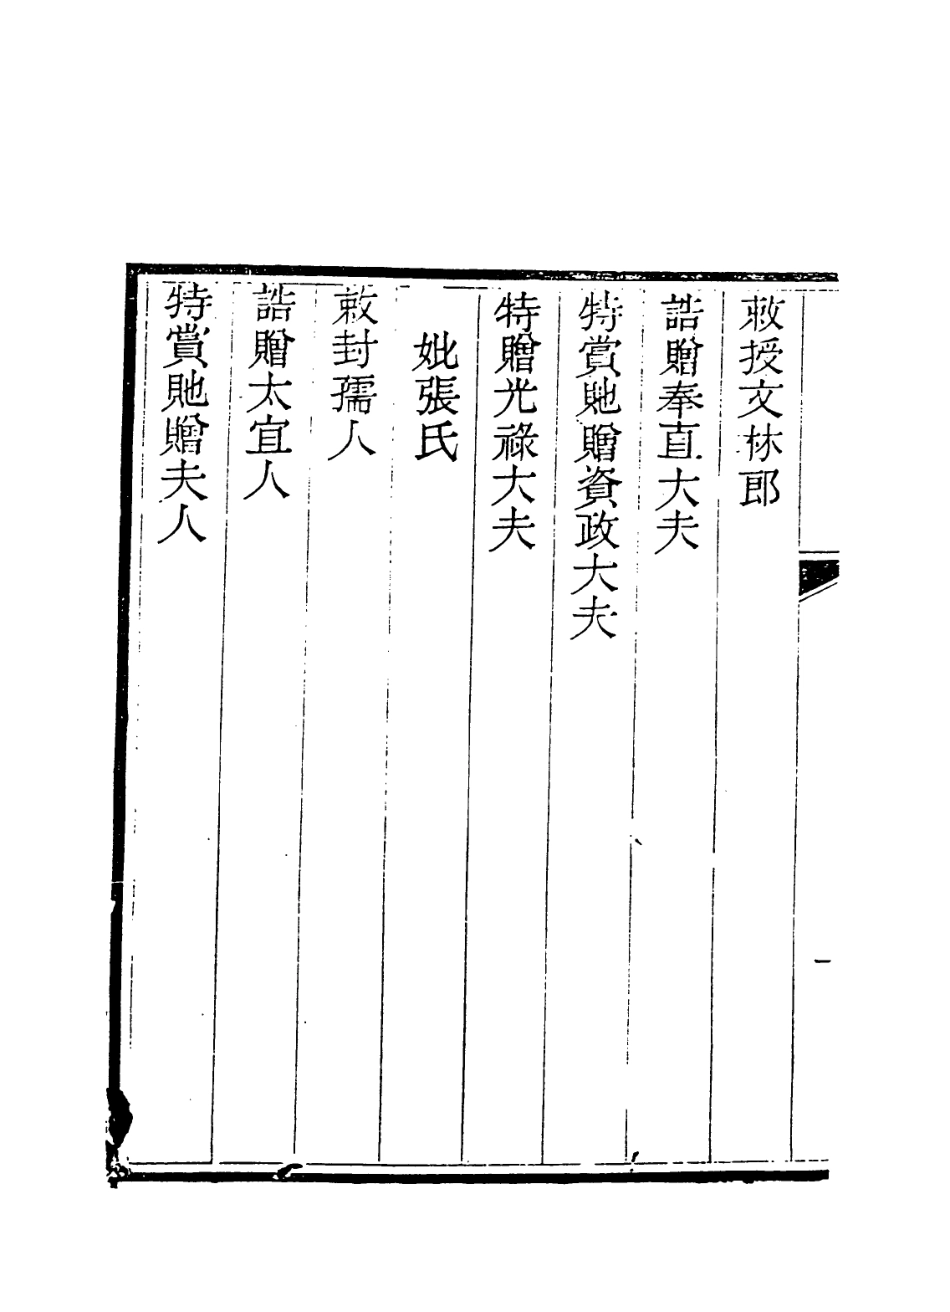 敕授文林郎
誥贈奉直大夫
特賞貤贈資政大夫
特贈光祿大夫
妣張氏
敕封孺人
誥贈太宜人
特賞貤贈夫人
一